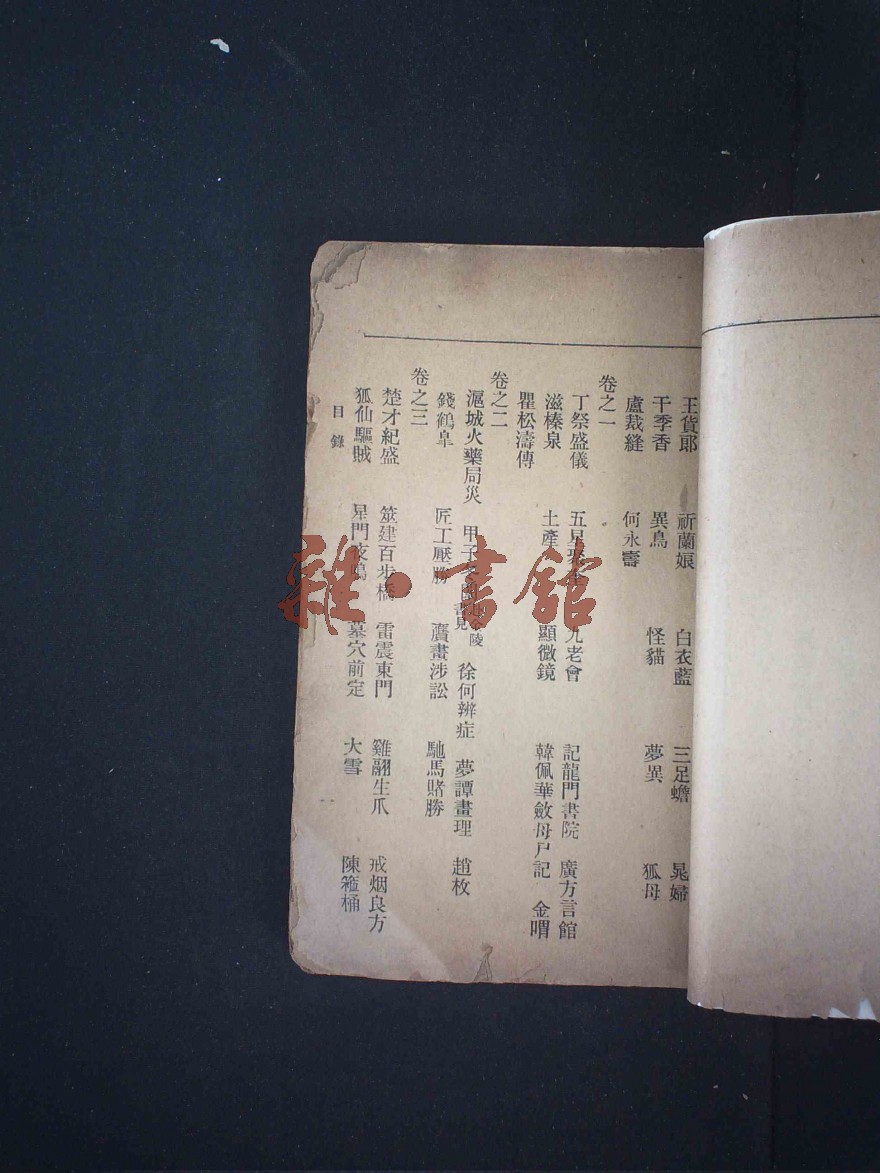 王貨郎 祈蘭娘 白衣藍 三足蟾 晁婦
干季香 異鳥 怪貓 夢異 狐母
盧裁縫 何永壽
卷之一
丁祭盛儀 五星聚奎 九老會 記龍門書院 廣方言館
滋榛泉 土產 顯微鏡 韓佩華斂母尸記 金喟
瞿松濤傳
卷之二
滬城火藥局災 甲子 金陵 書見 徐何辨症 夢譚畫理 趙枚
錢鶴臯 匠工壓勝 贋畫涉訟 馳馬賭勝
卷之三
楚才紀盛 筑建百步橋 雷震東門 雞翮生爪 戒烟良方
狐仙驅賊 星門夜鳴 墓穴前定 大雪 陳箍桶
目錄
雜·書館